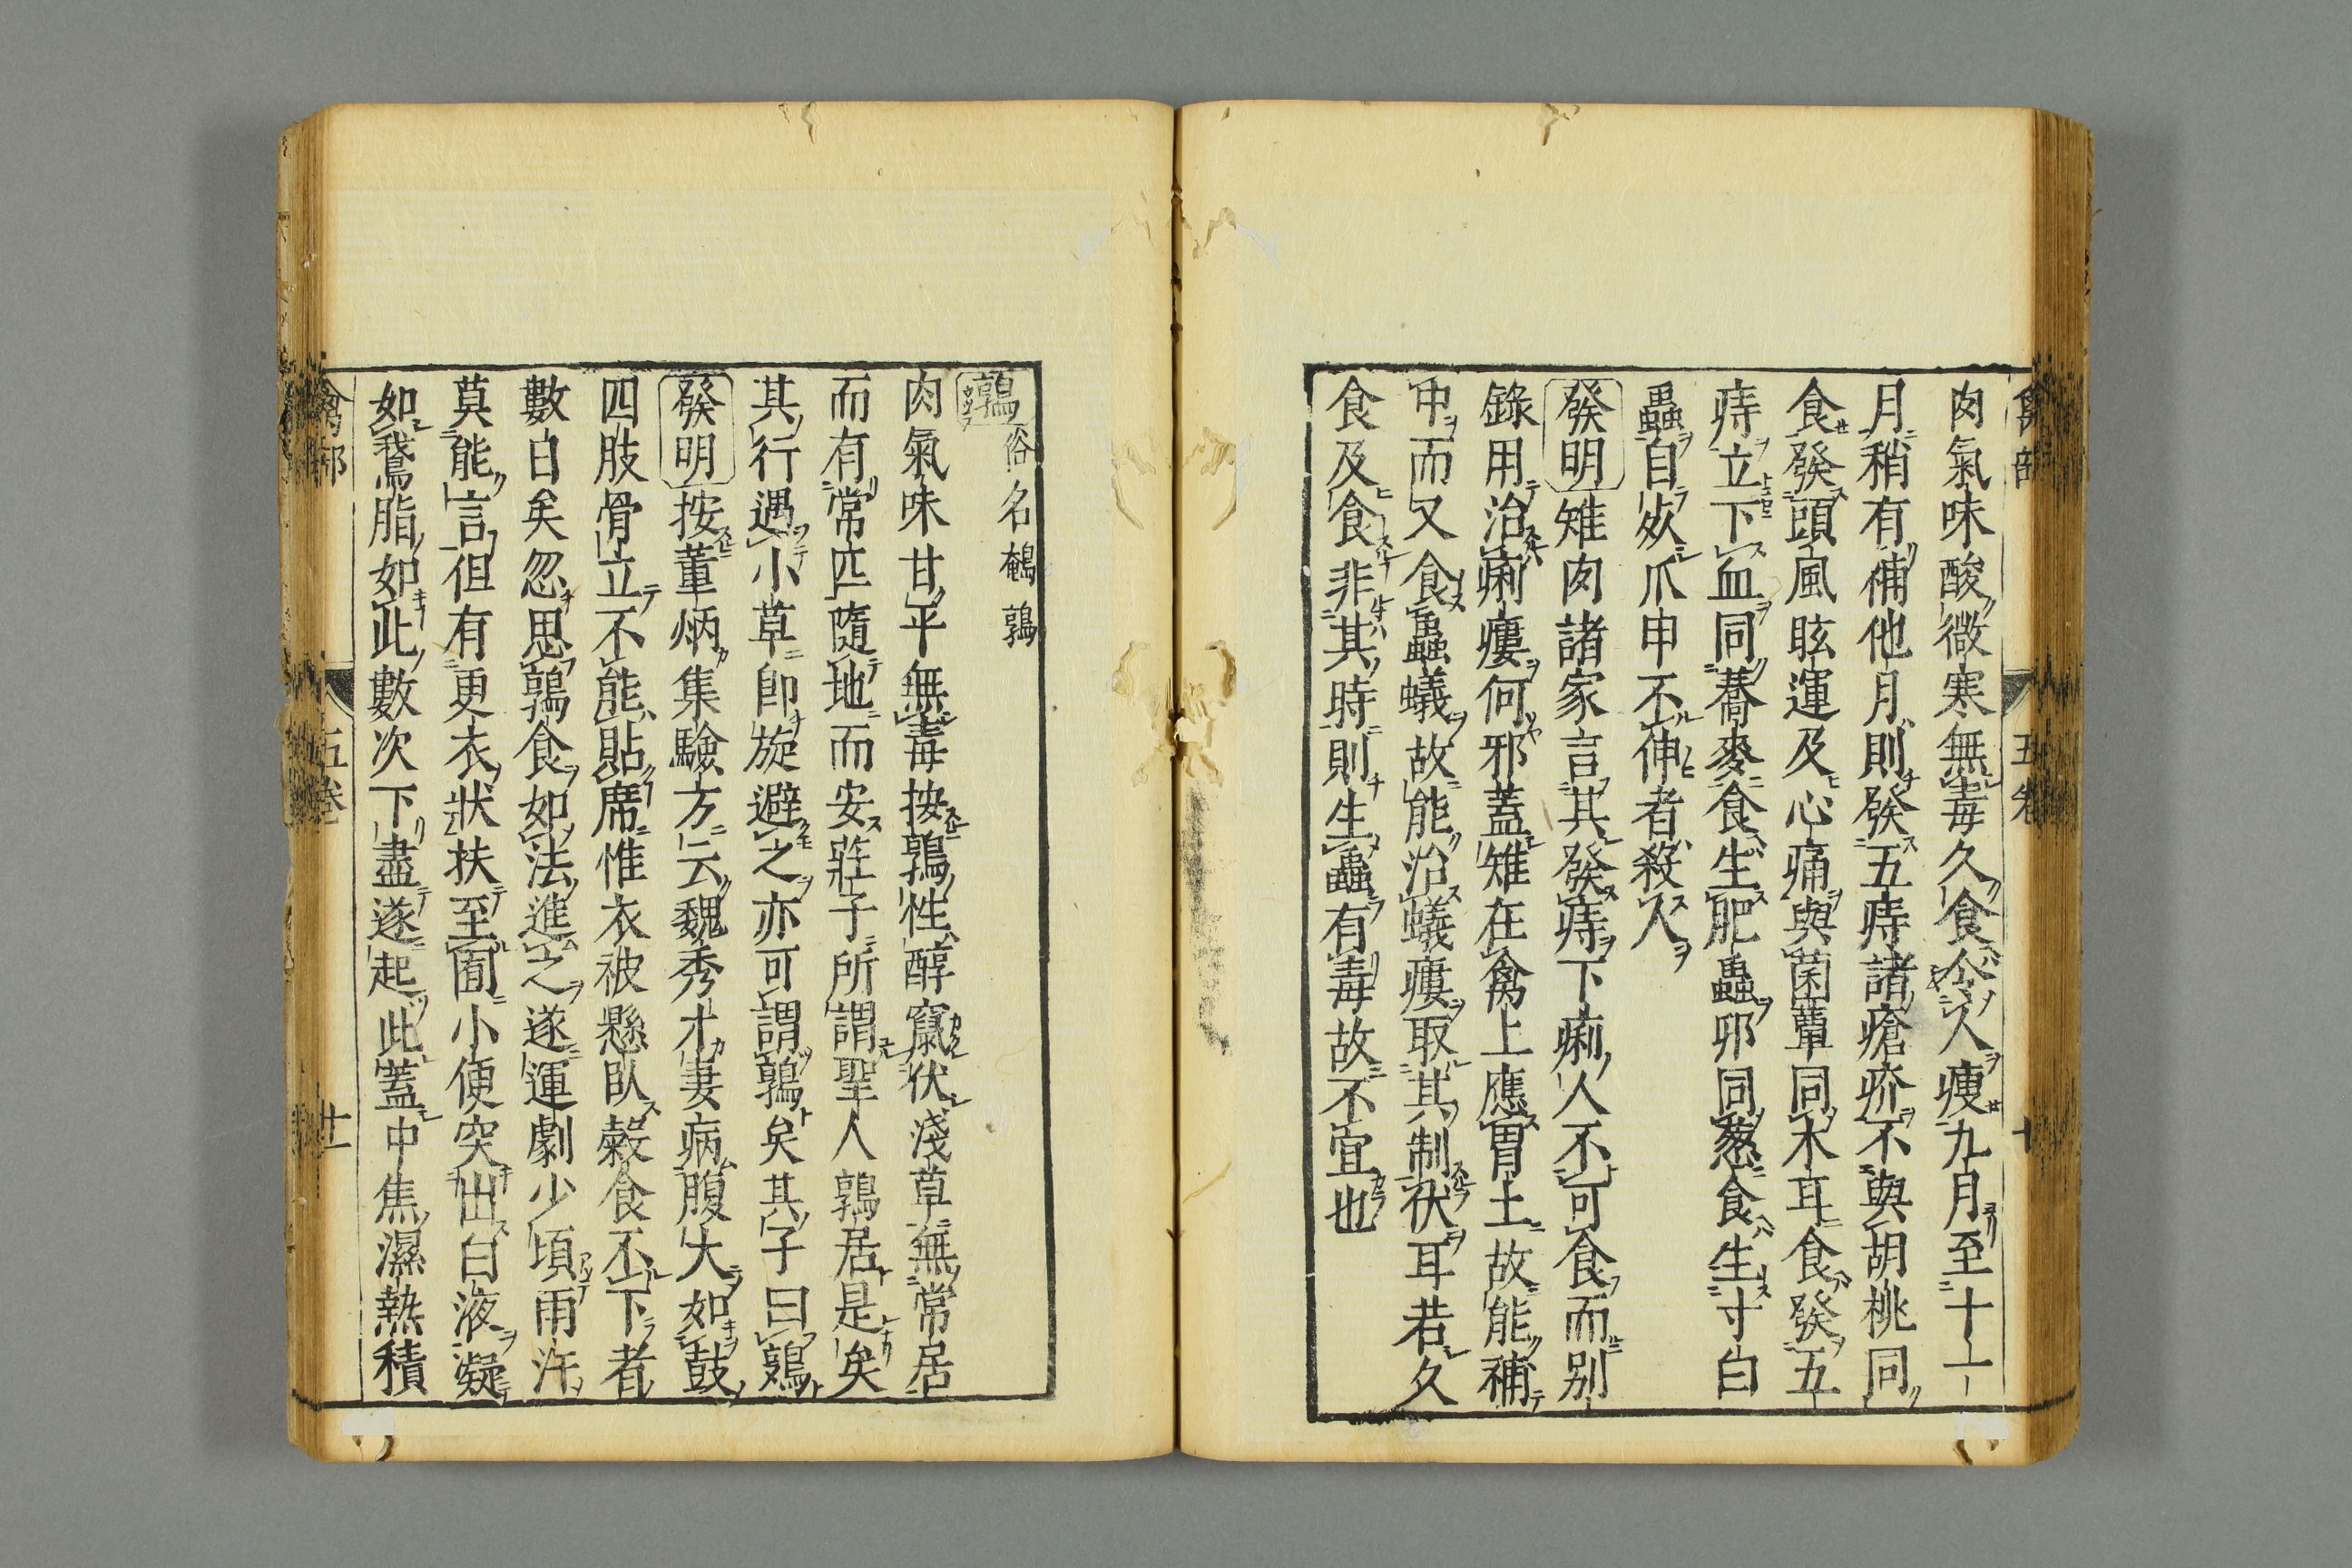 肉氣味酸微寒無毒久食令人瘦九月至十一
月稍有補他月則發五痔諸瘡疥不與胡桃同
食發頭風眩運及心痛與菌蕈同木耳食發五
痔立下血同蕎麥食生肥蟲卵同葱食生寸白
蟲自死爪申不伸者殺人
發明雉肉諸家言其發痔下痢人不可食而别
錄用治痢瘻何邪蓋雉在禽上應胃土故能補
中而又食蟲蟻故能治蟻瘻取其制伏耳若久
食及食非其時則生蟲有毒故不宜也
鶉俗名鵪鶉
肉氣味甘平無毒按鶉性醇竄伏淺草無常居
而有常匹隨地而安莊子所謂聖人鶉居是矣
其行遇小草即旋避之亦可謂鶉矣其子曰鴳
發明按董炳集驗方云魏秀才妻病腹大如鼓
四肢骨立不能貼席惟衣被懸臥穀食不下者
數日矣忽思鶉食如法進之遂運劇少頃雨汗
莫能言但有更衣狀扶至圊小便突出白液凝
如鵞脂如此數次下盡遂起此蓋中焦濕熱積
禽部 五卷 廿一